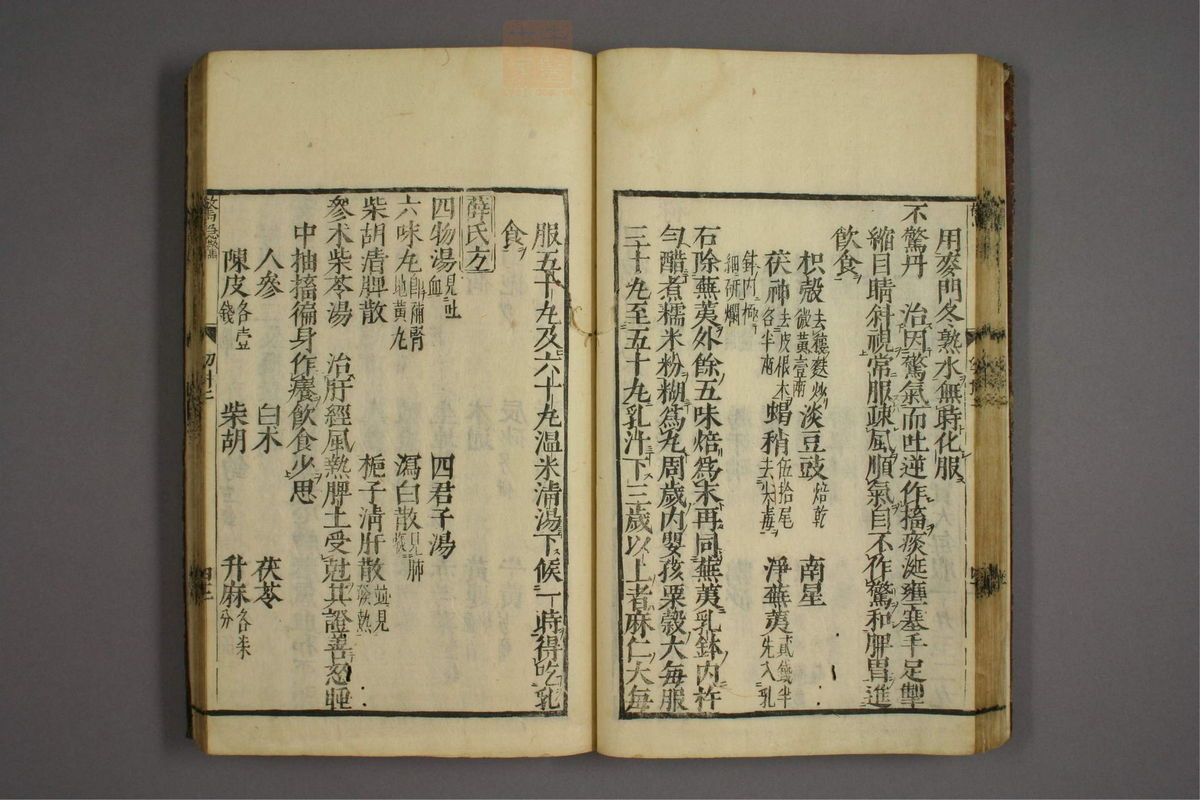 用麥門冬熟水無時化服
不驚丹 治因驚氣而吐逆作搐痰涎壅塞手足掣
縮目睛斜視常服疎風順氣自不作驚和脾胃進
飲食
枳殼去穰麩炒微黃壹兩 淡豆豉焙乾 南星
茯神去皮根木各半兩 蝎稍伍拾尾去尖毒 淨蕪荑貳錢半先入乳
鉢內極細研爛
右除蕪荑外餘五味焙為末再同蕪荑乳鉢內杵
勻醋煮糯米粉糊為丸周歲內嬰孩粟穀大每服
三十丸至五十丸乳汁下三歲以上者麻仁大每
服五十丸及六十丸温米清湯下候一時得吃乳
食
薛氏方
四物湯見吐血 四君子湯
六味丸自補腎地黃丸 瀉白散見肺
柴胡清脾散 梔子清肝散並見發熱
參术柴苓湯 治肝經風熱脾土受尅其證善怒睡
中抽搐徧身作癢飲食少思
人參 白术 茯苓
陳皮各壹錢 柴胡 升麻各柒分